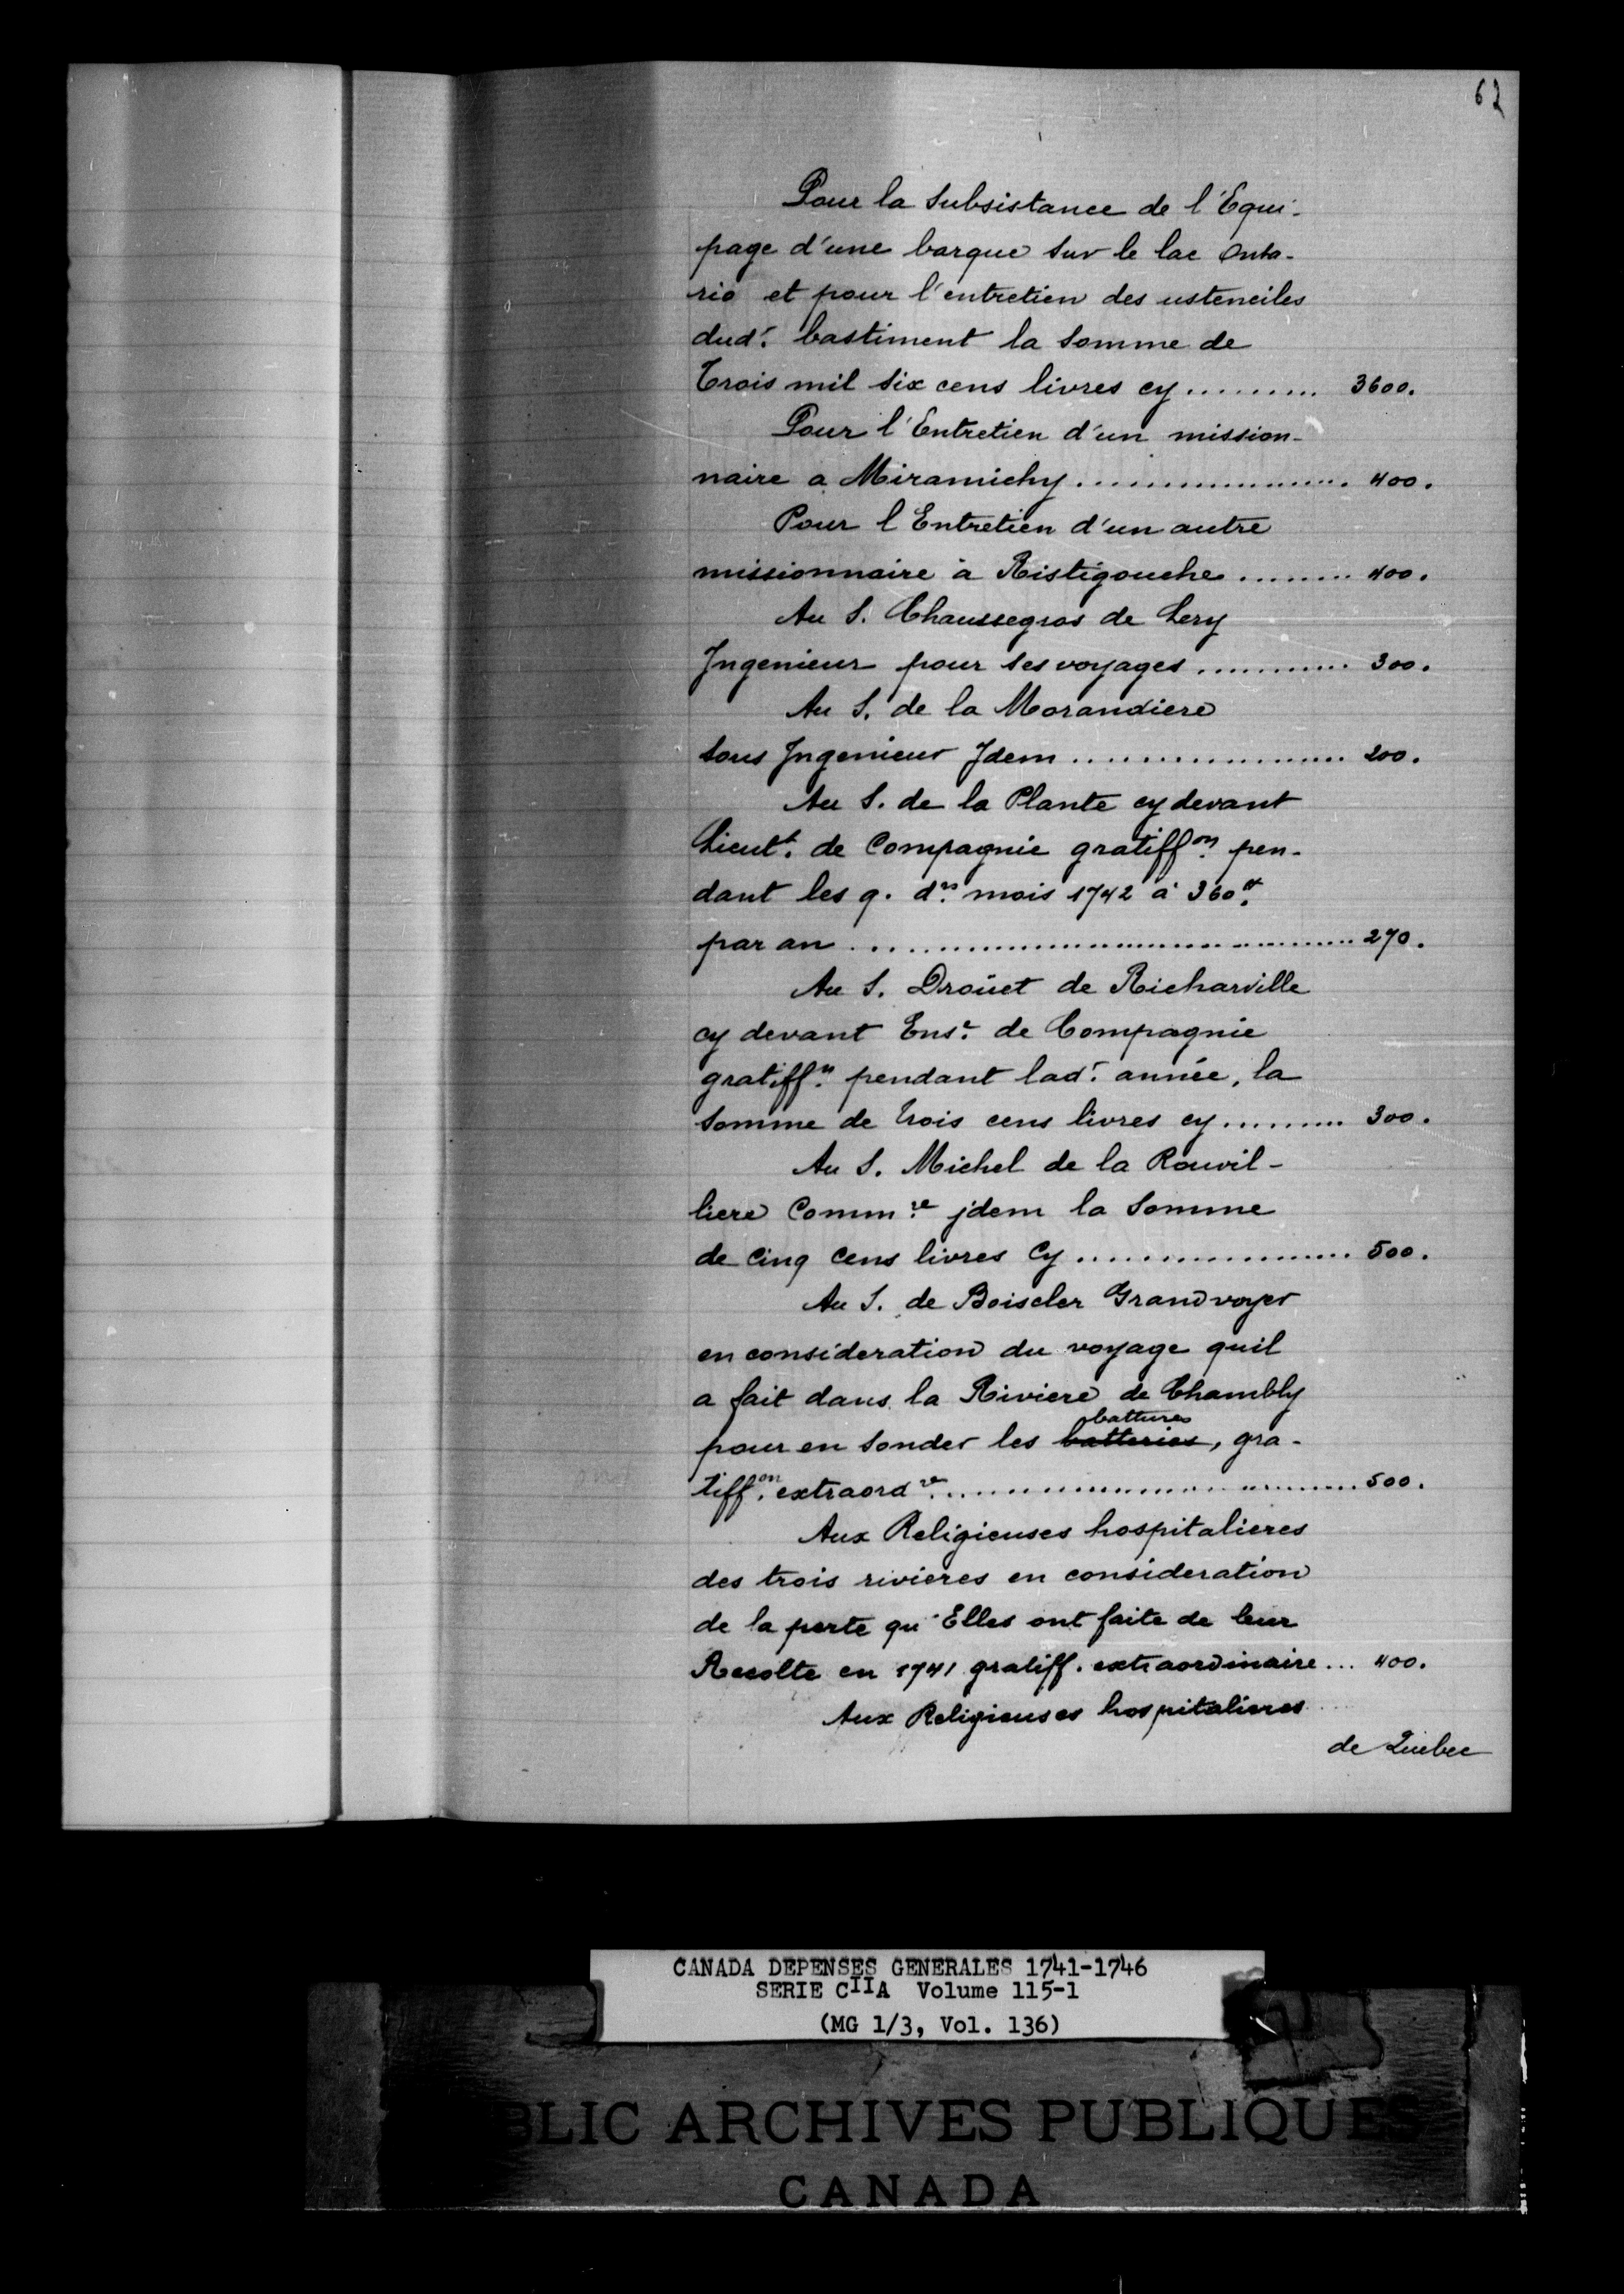 62
Pour la Subsistance de l'Equi-
page d'une barque sur le lac Onta-
rio et pour l'entretien des ustenciles
dud.t bastiment la Somme de
Trois mil six cens livres cy ......... 3600.
Pour l'Entretien d'un mission-
naire a Miramichy .................... 400.
Pour l Entretien d'un autre
missionnaire à Ristigouche ......... 400.
Au S. Chaussegros de Lery
Ingenieur pour ses voyages ........... 300.
Au S. de la Morandiere
Sous Ingenieur Jdem .................... 200.
Au S. de la Plante cy devant
Lieut.t de Compagnie gratiff.on pen-
dant les 9. d.rs mois 1742 à 360.#
par an .................................... 270.
Au S. Droüet de Richarville
cy devant Ens.e de Compagnie
gratiff.n pendant lad.t année, la
Somme de trois cens livres cy ......... 300.
Au S. Michel de la Rouvil-
liere Comm.re jdem la Somme
de Cinq Cens livres Cy .................... 500.
Au S. de Boiscler Grandvoyer
en consideration du voyage quil
a fait dans la Riviere de Chambly
battures
pour en sonder les batteries, gra-
tiff.on extraord.re .............................. 500.
Aux Religieuses hospitalieres
des trois rivieres en consideration
de la perte qu'Elles ont faite de leur
Recolte en 1741 gratiff. extraordinaire ... 400.
Aux Religieuses hospitalieres
de Quebec
CANADA DEPENSES GENERALES 1741-1746
SERIE CIIA Volume 115-1
(MG 1/3, Vol. 136)
BLIC ARCHIVES PUBLIQUES
CANADA